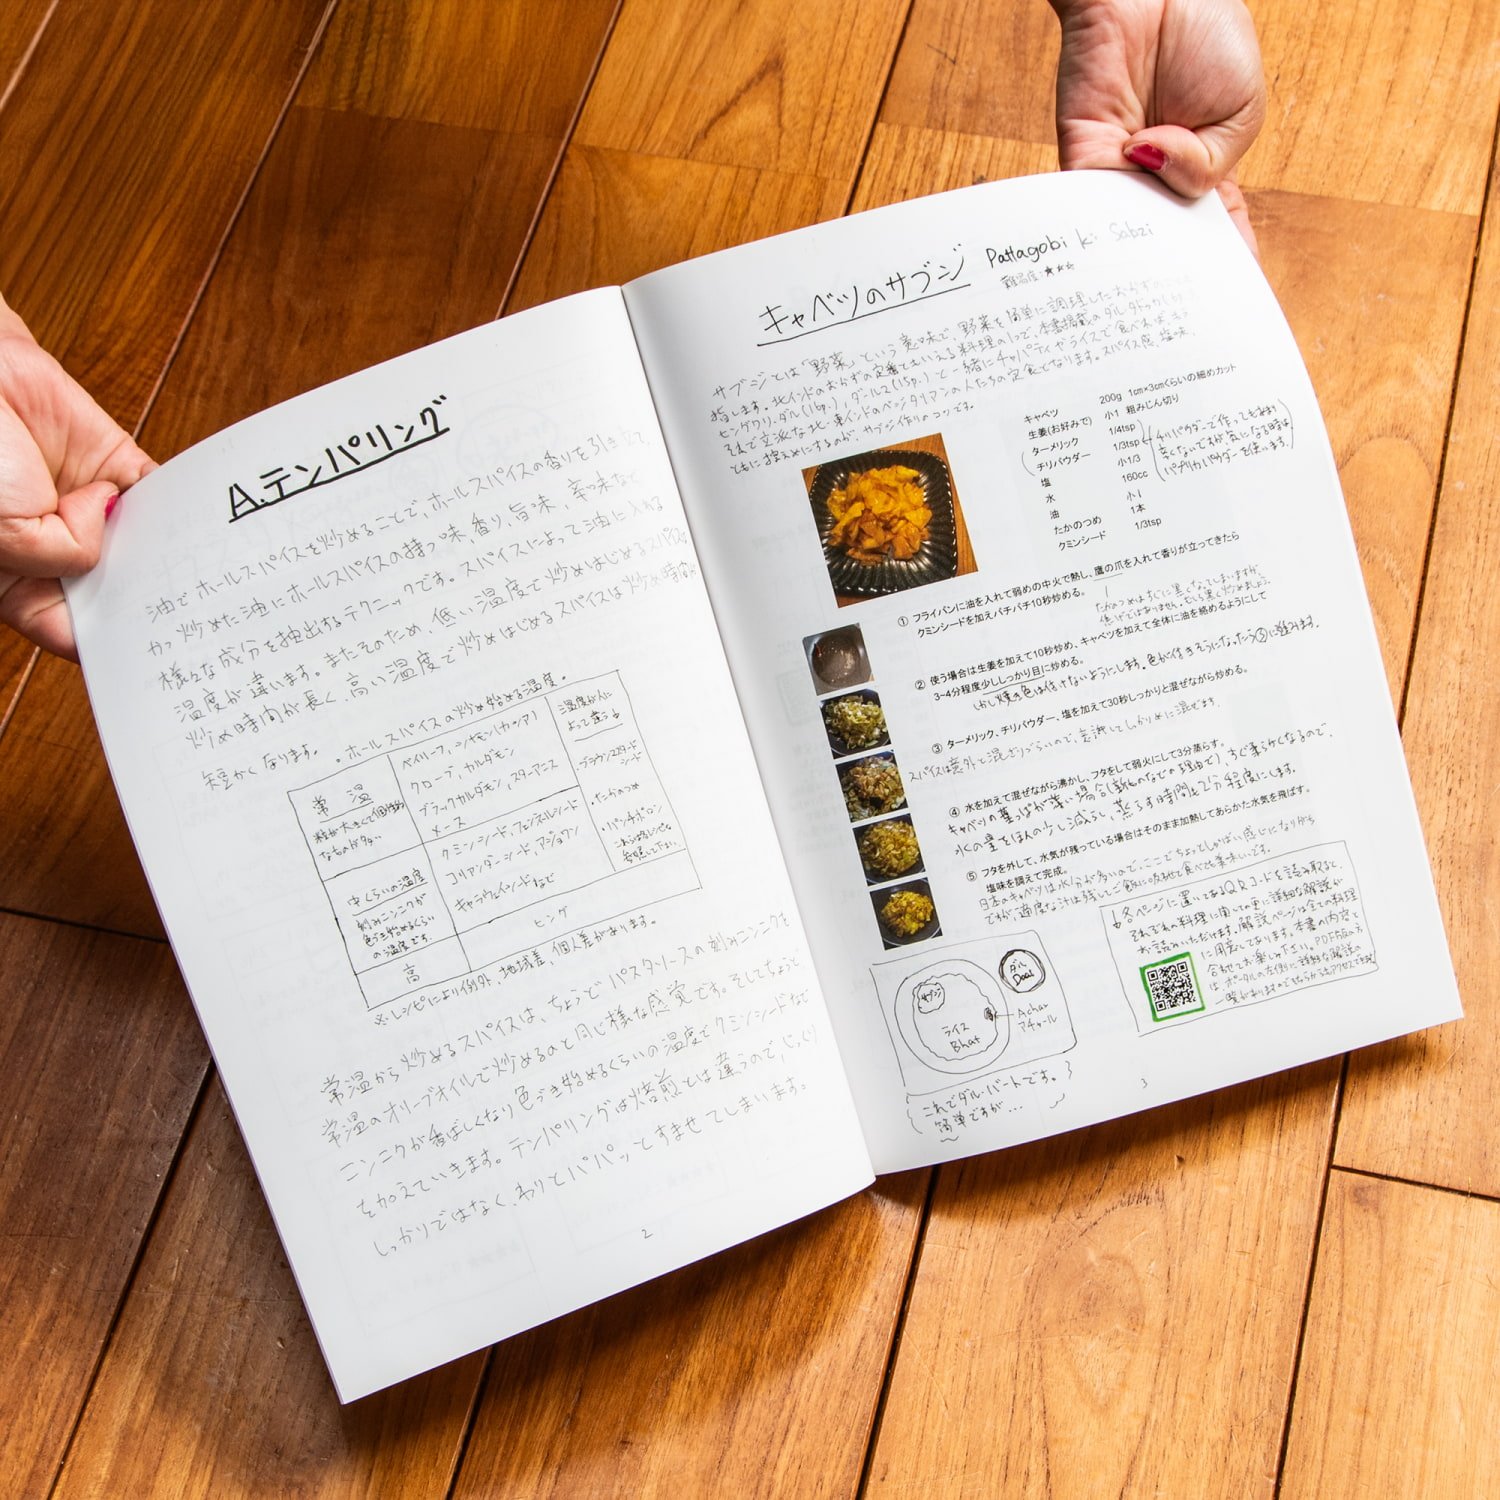 A.テンパリング
油でホールスパイスを炒めることで、ホールスパイスの香りを引き立て、
かつ炒めた油にホールスパイスの持つ味、香り、旨味、辛味など
様々な成分を抽出するテクニックです。スパイスによって油に入れる
温度が違います。またそのため、低い温度で炒めはじめるスパイスは
炒め時間が長く、高い温度で炒めはじめるスパイスは炒め時間が
短かくなります。
・ホールスパイスの炒め始める温度。
常温
粒が大きくて個性的
なものが多い
ベイリーフ、シナモン(カシア)
クローブ、カルダモン
ブラックカルダモン、スターアニス
メース
温度が人に
よって違うよ
・ブラウンマスタード
シード
・たかのつめ
・パンチホロン
これらは各レシピを
参照して下さい。
中くらいの温度
刻みニンニクが
色づき始めるくらい
の温度です。
クミンシード、フェンネルシード
コリアンダーシード、アジョワン
キャラウェイシードなど
高
ヒング
※レシピにより例外、地域差、個人差があります。
常温から炒めるスパイスは、ちょうどパスタソースの刻みニンニクを
常温のオリーブオイルで炒めるのと同じ様な感覚です。そしてちょうど、
ニンニクが香ばしくなり色づき始めるくらいの温度でクミンシードなど
を加えていきます。テンパリングは焙煎とは違うので、じっくり
しっかりではなく、わりとパパッとすませてしまいます。
2
キャベツのサブジ Pattagobi ki Sabzi
難易度:★☆☆
サブジとは「野菜」という意味で、野菜を簡単に調理したおかずのことを
指します。北インドのおかずの定番ともいえる料理の1つで、本書掲載のダル
ヒングワリ・ダル(16p.)、ダールス(15p.)と一緒にチャパティやライスで食べれば
それで立派な北・東インドのベジタリアンの人たちの定食となります。スパイス感、塩味、
ともに控えめにするのが、サブジ作りのコツです。
キャベツ 200g 1cm×3cmくらいの細めカット
生姜(お好みで) 小1 粗みじん切り
ターメリック 1/4tsp
チリパウダー 1/3tsp
塩 小1/3
水 160cc
油 小1
たかのつめ 1本
クミンシード 1/3tsp
チリパウダーで作ってもあまり
辛くないですが気になる時は
パプリカパウダーを使います。
① フライパンに油を入れて弱めの中火で熱し、鷹の爪を入れて香りが立ってきたら
クミンシードを加えパチパチ10秒炒める。
たかのつめはすぐに黒くなってしまいますが、
焦げではありません。むしろ黒く炒めましょう。
② 使う場合は生姜を加えて10秒炒め、キャベツを加えて全体に油を絡めるようにして
3~4分程度少ししっかり目に炒める。
しかし焼き色は付けないようにします。色が付きそうになったら③に進みます。
③ ターメリック、チリパウダー、塩を加えて30秒しっかりと混ぜながら炒める。
スパイスは意外と混ざりづらいので、意識してしっかりめに混ぜます。
④ 水を加えて混ぜながら沸かし、フタをして弱火にして3分蒸らす。
キャベツの葉っぱが薄い場合(新ものなどの理由で)、すぐ柔らかくなるので、
水の量をほんの少し減らし、蒸らす時間も2分程度にします。
⑤ フタを外して、水気が残っている場合はそのまま加熱してあらかた水気を飛ばす。
塩味を調えて完成。
日本のキャベツは水分が多いので、ここでちょっとしゃばい感じになりがち
ですが、適度な汁は残してご飯に吸わせて食べても美味しいです。
各ページに置いてあるQRコードを読み取ると、
それぞれの料理に関しての更に詳細な解説が
お読みいただけます。解説ページは全ての料理
に用意しております。本書の内容と
合わせてお楽しみ下さい。PDF版の方
は、ポータルの左側に詳細な解説の
一覧がありますのでそちらからもアクセスできます
サブジ
ダル
Daal
ライス
Bhat
Achar
アチャール
これでダル・バートです。
簡単ですが...
3